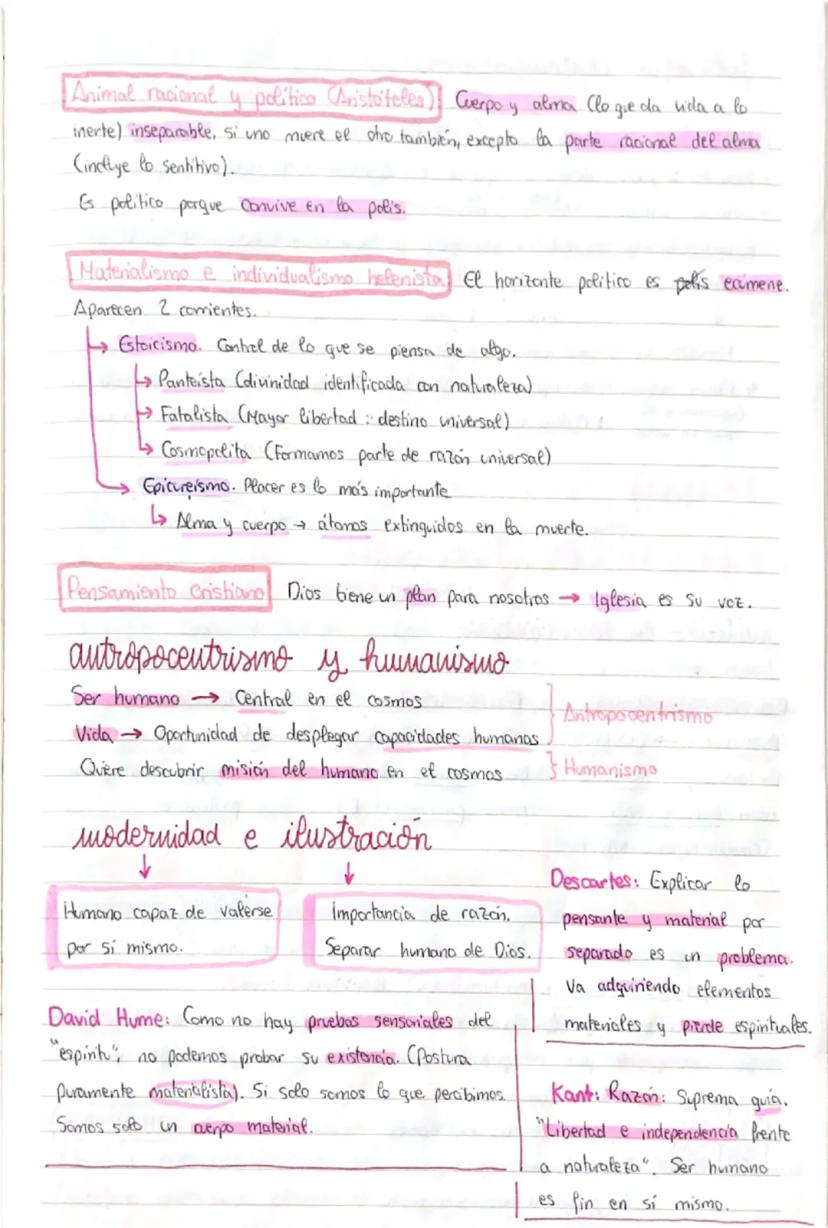 Animal racional y político (Aristóteles) Cuerpo y alma (lo que da vida a lo
inerte) inseparable, si uno muere el otro también, excepto la parte racional del alma
(incluye lo sentitivo).
Es político porque convive en la polis.
Materialismo e individualismo helenista El horizonte político es polis ecúmene.
Aparecen 2 corrientes.
Estoicismo. Control de lo que se piensa de algo.
Panteísta (divinidad identificada con naturaleza)
Fatalista (Mayor libertad: destino universal)
Cosmopolita (Formamos parte de razón universal)
Epicureísmo. Placer es lo más importante
Alma y cuerpo → átomos extinguidos en la muerte.
Pensamiento cristiano Dios tiene un plan para nosotros → Iglesia es su voz.
antropocentrismo y humanismo
Ser humano → Central en el cosmos
Vida → Oportunidad de desplegar capacidades humanas
Antropocentrismo
Quiere descubrir misión del humano en el cosmos
Humanismo
modernidad e ilustración
Humano capaz de valerse
por sí mismo.
Importancia de razón.
Separar humano de Dios.
Descartes: Explicar lo
pensante y material por
separado es un problema.
Va adquiriendo elementos
materiales y pierde espirituales.
David Hume: Como no hay pruebas sensoriales del
"espíritu", no podemos probar su existencia. (Postura
puramente materialista). Si solo somos lo que percibimos
Somos solo un cuerpo material.
Kant: Razón: Suprema guía.
"Libertad e independencia frente
a naturaleza". Ser humano
es fin en sí mismo.